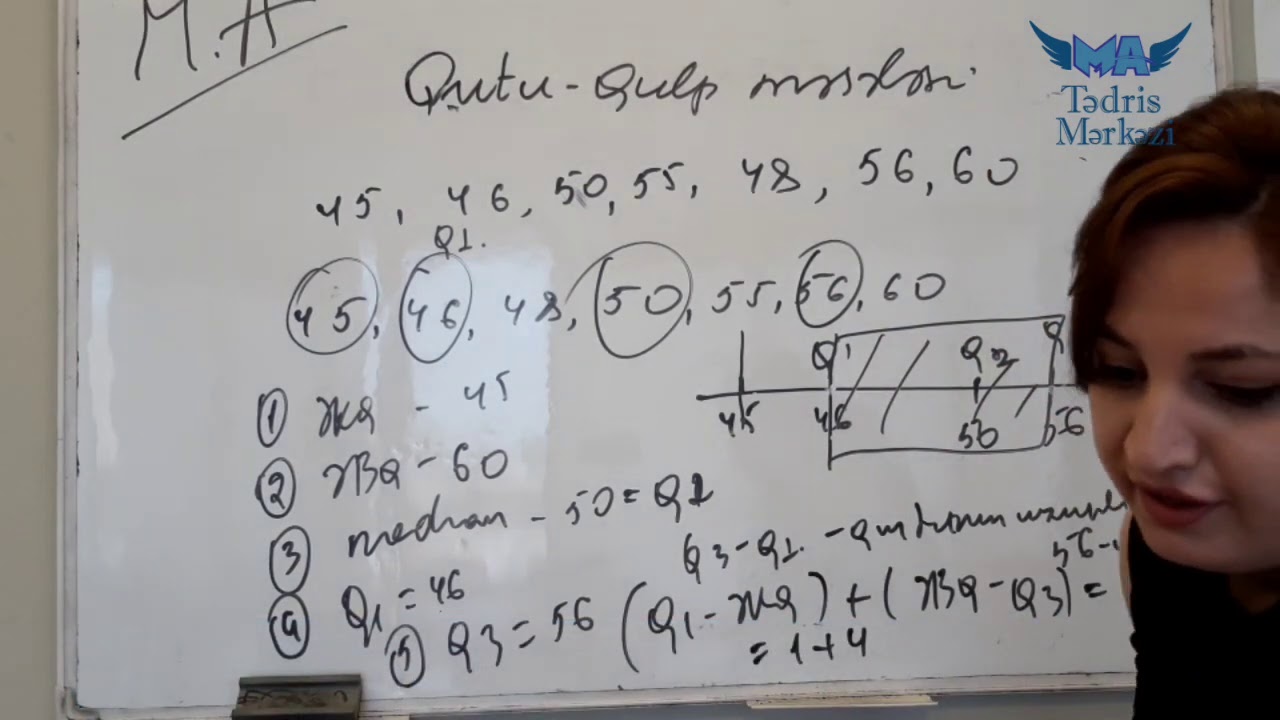 M.A
MA
Tədris
Mərkəzi
Qutu-Qulp məsələsi
45, 46, 50, 55, 48, 56, 60
Q1.
45, 46, 48, 50, 55, 56, 60
Q1 Q2 Q
45 46 50 56
① ƏKQ - 45
② ƏBQ - 60
③ median - 50 = Q2
Q3-Q1. - qutunun uzunlu
56-
④ Q1 = 46
⑤ Q3 = 56 (Q1 - ƏKQ) + (ƏBQ - Q3) =
= 1+4